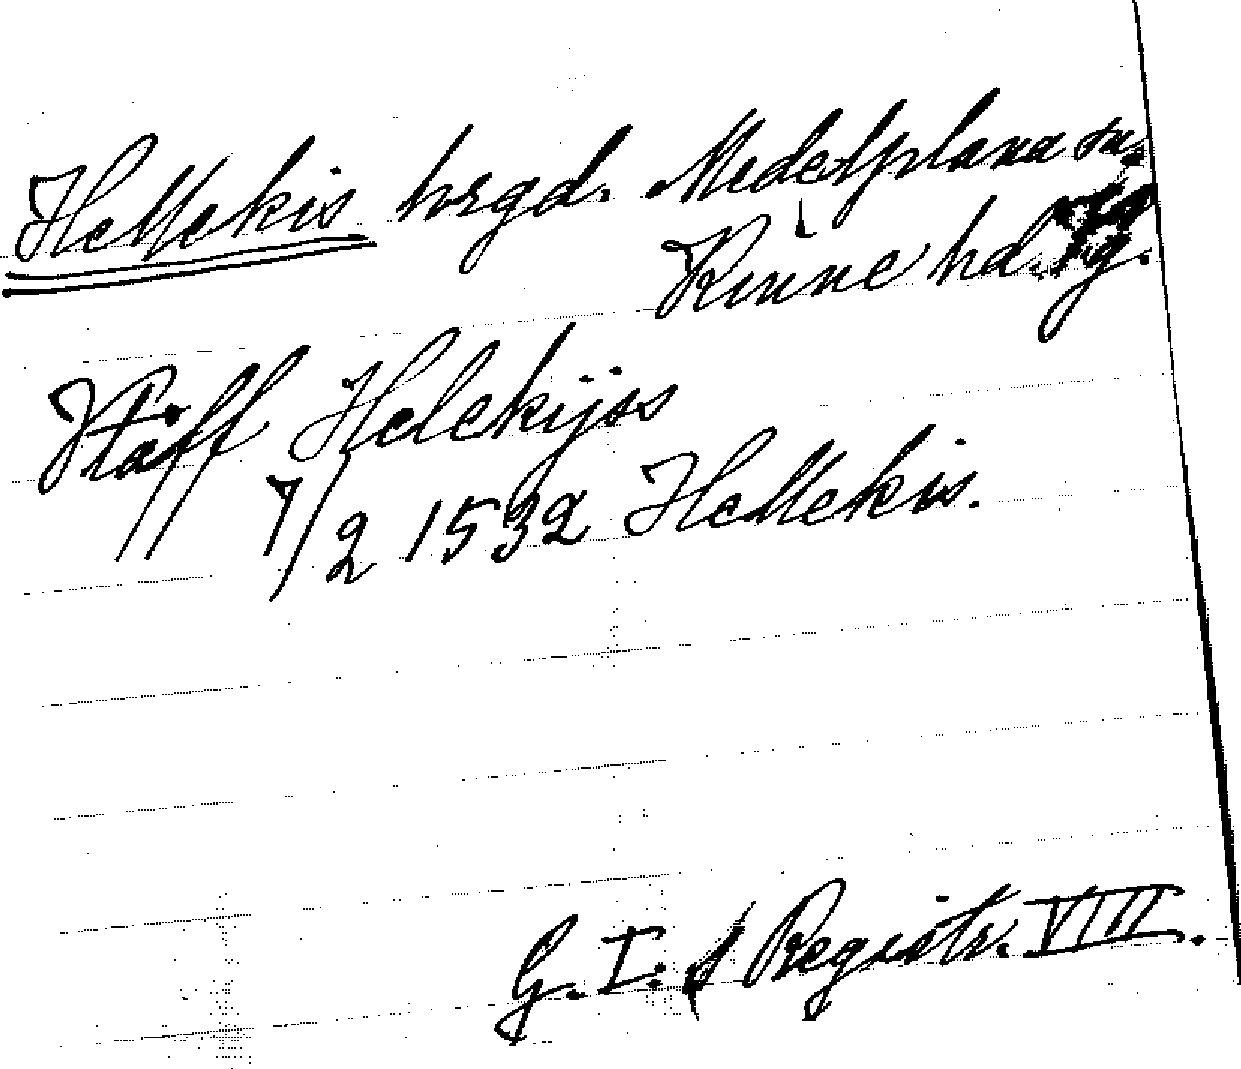 Hellekis hrgd. Medelplana sn.
Kinne hd. Vg.
Håff Helekijss
7/2 1532 Hellekis.
G. I. s Registr. VIII.